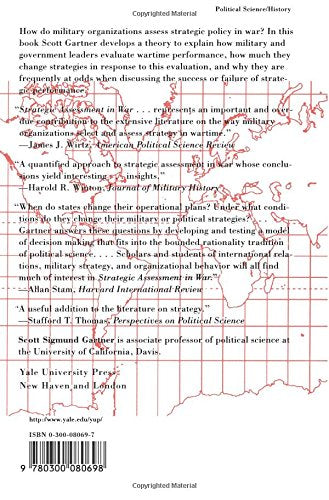 Copyrighted Material
Political Science/History
How do military organizations assess strategic policy in war? In this
book Scott Gartner develops a theory to explain how military and
government leaders evaluate wartime performance, how much they
change strategies in response to this evaluation, and why they are
frequently at odds when discussing the success or failure of strate-
gic performance.
"Strategic Assessment in War . . . represents an important and over-
due contribution to the extensive literature on the way military
organizations select and assess strategy in wartime."
—James J. Wirtz, American Political Science Review
"A quantified approach to strategic assessment in war whose conclu-
sions yield interesting . . . insights."
—Harold R. Winton, Journal of Military History
"When do states change their operational plans? Under what condi-
tions do they change their military or political strategies? . . .
Gartner answers these questions by developing and testing a model
of decision making that fits into the bounded rationality tradition
of political science. . . . Scholars and students of international rela-
tions, military strategy, and organizational behavior will all find
much of interest in Strategic Assessment in War."
—Allan Stam, Harvard International Review
"A useful addition to the literature on strategy."
—Stafford T. Thomas, Perspectives on Political Science
Scott Sigmund Gartner is associate professor of political science at
the University of California, Davis.
Yale University Press
New Haven and London
http://www.yale.edu/yup/
ISBN 0-300-08069-7
9 780300 080698
Copyrighted Material